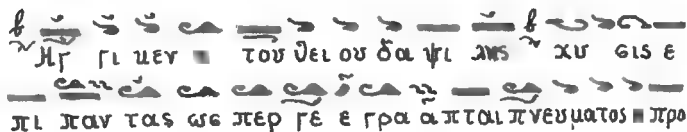 Ηγ γι κεν του θει ου δα ψι λης χυ σις ε
πι παν τας ως περ γε ε γρα α πται πνευματος προ